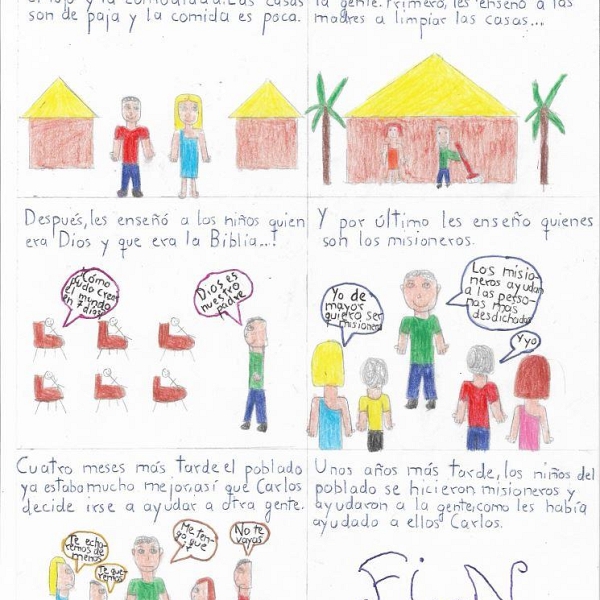 son de paja y la comida es poca.
la gente. Primero, les enseñó a las
madres a limpiar las casas...
Después, les enseñó a los niños quien
era Dios y que era la Biblia...!
¿Cómo
pudo crear
el mundo
en 7 días?
Dios es
nuestro
Padre
Y por último les enseño quienes
son los misioneros.
Yo de
mayor
quiero ser
misionera
Los misio-
neros ayudan
a las perso-
nas mas
desdichadas
Y yo
Cuatro meses más tarde el poblado
ya estaba mucho mejor, así que Carlos
decide irse a ayudar a otra gente.
Te echa-
remos de
menos
Te que-
remos
Me ten-
go que
ir
No te
vayas
Unos años más tarde, los niños del
poblado se hicieron misioneros y
ayudaron a la gente, como les había
ayudado a ellos Carlos.
FiN